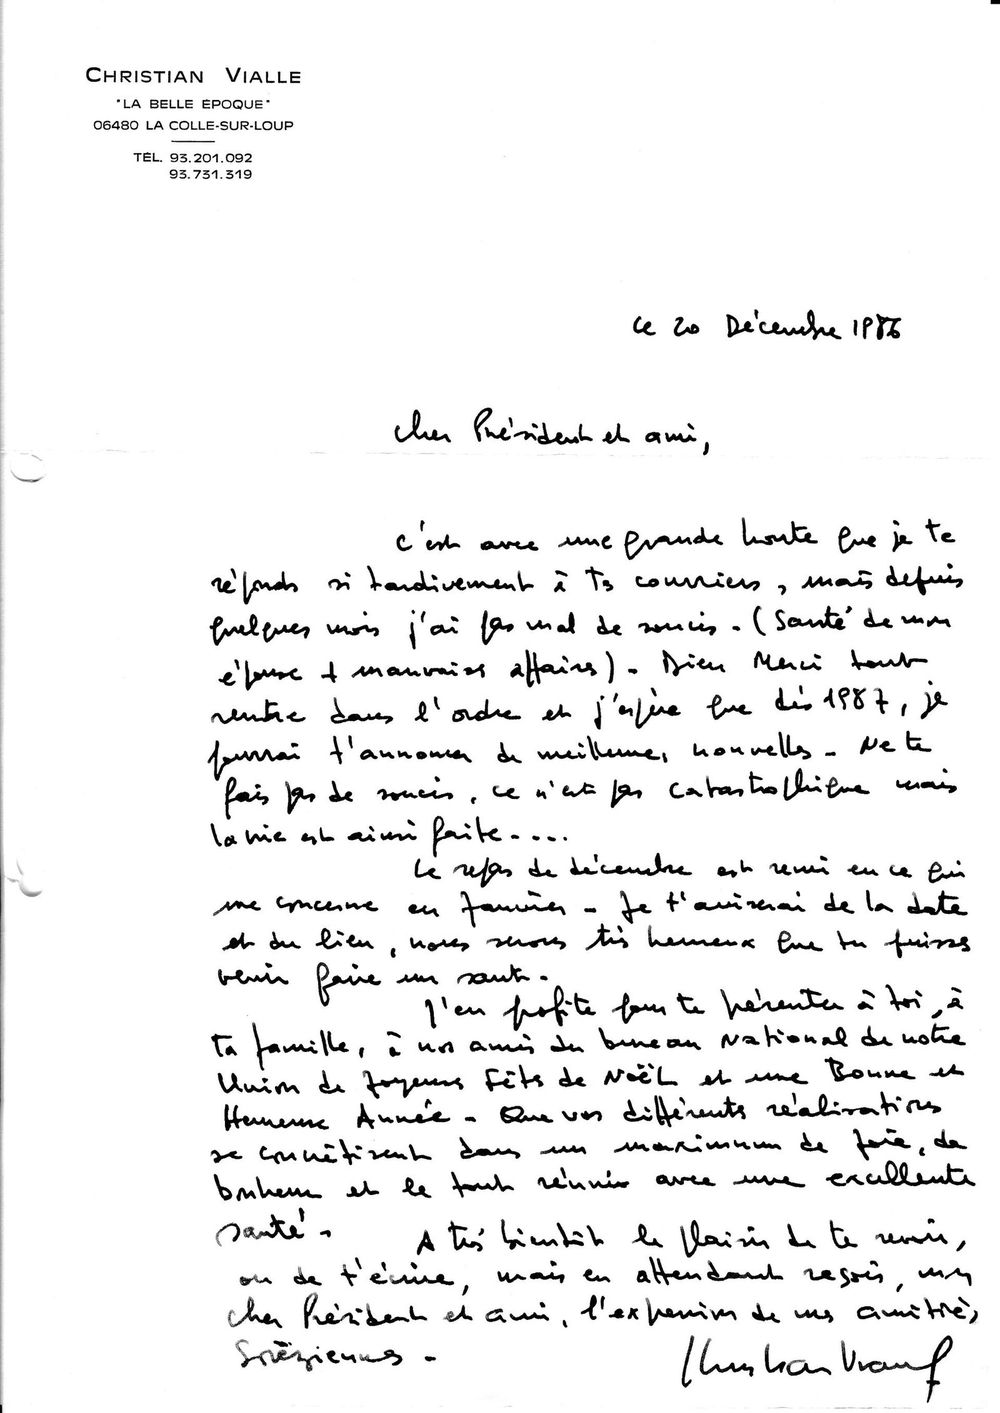 CHRISTIAN VIALLE
"LA BELLE EPOQUE"
06480 LA COLLE-SUR-LOUP
TÉL. 93.201.092
93.731.319
Le 20 Décembre 1986
Cher Président et ami,
C'est avec une grande honte que je te
réponds si tardivement à ts courriers, mais depuis
quelques mois j'ai pas mal de soucis. (Santé de mon
épouse + mauvaises affaires). Dieu Merci tout
rentre dans l'ordre et j'espère que dès 1987, je
pourrai t'annoncer de meilleures nouvelles. Ne te
fais pas de soucis, ce n'est pas catastrophique mais
la vie est ainsi faite....
Le repas de décembre est remi en ce qui
me concerne en Janvier. Je t'aviserai de la date
et du lieu, nous serons très heureux que tu puisses
venir faire un saut.
J'en profite pour te présenter à toi, à
ta famille, à nos amis du bureau National de notre
Union de Joyeuses Fêtes de Noël et une Bonne et
Heureuse Année. Que vos différentes réalisations
se concrétisent dans un maximum de joie, de
bonheur et le tout réunis avec une excellente
santé.
A très bientôt le plaisir de te revoir,
ou de t'écrire, mais en attendant reçois, mon
cher Président et ami, l'expression de mes amitiés
Soréziennes.